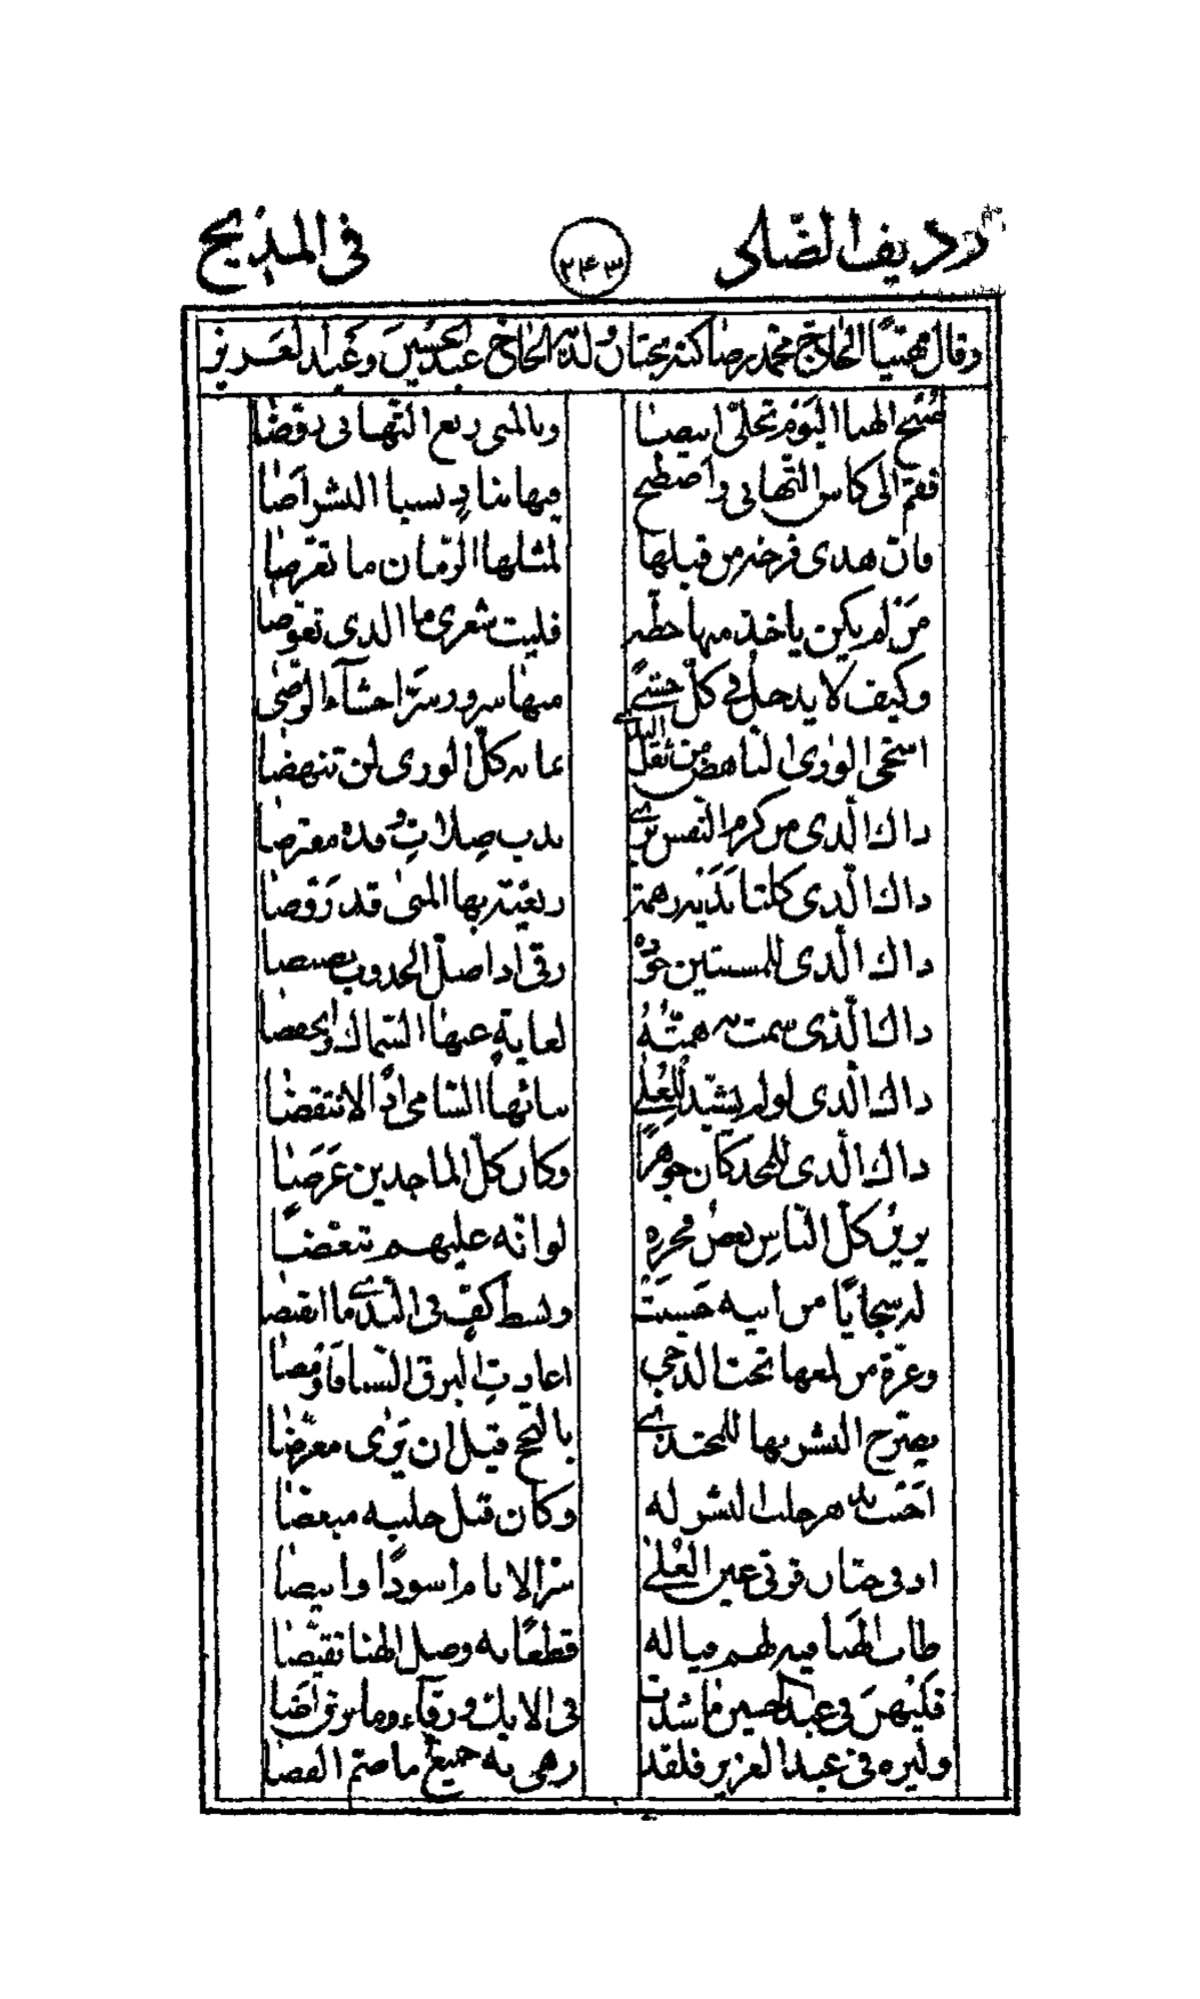 رديف الضاد
٢٤٣
في المديح
وقال مهنيًا الحاج محمد رضا كبه بختان ولديه الحاج عبد الحسين وعبد العزيز
صبح الهنا اليوم تجلّى ابيضا وبالمنى ربع التهاني روّضا
فقم الى كاس التهاني واصطبح فيها بنا به سبا البشر اضا
فان هذي فرحة من قبلها لمثلها الزمان ما تعرّضا
من لم يكن ياخذ منها حظه فليت شعري ما الذي تعوّضا
وكيف لا يدخل في كلّ حشىً منها سرور سرّ احشاء الرضى
اسخى الورى الناهض من ثقل الندى بما به كلّ الورى لن تنهضا
ذاك الذي من كرم النفس يرى ندب صلات وفده مفترضا
ذاك الذي كلتا يديه رهمة ربعية بها المنى قد روّضا
ذاك الذي للمسنتين جوده رقى اذا صلّ الجدوب نضنضا
ذاك الذي سمت به همّته لغاية عنها السماك انخفضا
ذاك الذي لو لم يشيّد للعلى بناؤها السامي اذًا لانتقضا
ذاك الذي للمجد كان جوهرًا وكان كلّ الماجدين عرضا
يزين كلّ الناس بعض فخره لو انه عليهم تبعّضا
له سجايا من ابيه حسنت وبسط كفّ في الندى ما انقبضا
وغرّة من لمعها تحت الدجى اعارت البرق السنا فاومضا
يصرّح البشر بها للمجتدى بالنجح قبل ان يرى معرّضا
احبت به حلب البشر له وكان قبل حلبه مبغضا
اذ في ختان قرتي عين العلى سرّ الانام اسودًا وابيضا
طاب الهنا فيه لهم فيا له قطعًا به وصل الهنا تقيّضا
فليهن في عبد الحسين ما شدت في الايك ورقاء وما برق اضا
وليزه في عبد العزيز فلقد زهى به جميع ما ضم الفضا